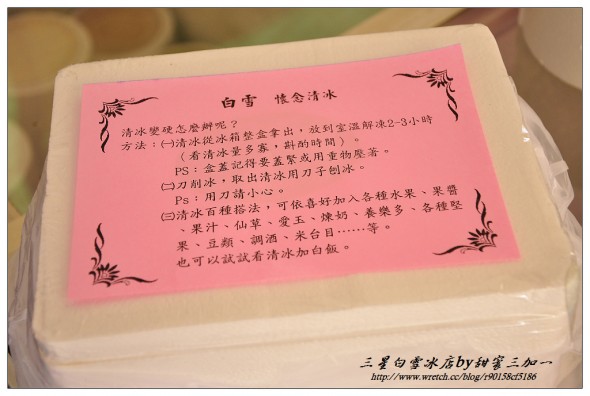 白雪 懷念清冰
清冰變硬怎麼辦呢？
方法：㈠清冰從冰箱整盒拿出，放到室溫解凍2-3小時
（看清冰量多寡，斟酌時間）。
PS：盒蓋記得要蓋緊或用重物壓著。
㈡刀削冰，取出清冰用刀子刨冰。
Ps：用刀請小心。
㈢清冰百種搭法，可依喜好加入各種水果、果醬
、果汁、仙草、愛玉、煉奶、養樂多、各種堅
果、豆類、調酒、米台目……等。
也可以試試看清冰加白飯。
三星白雪冰店by甜蜜三加一
http://www.wretch.cc/blog/r90158cf5186